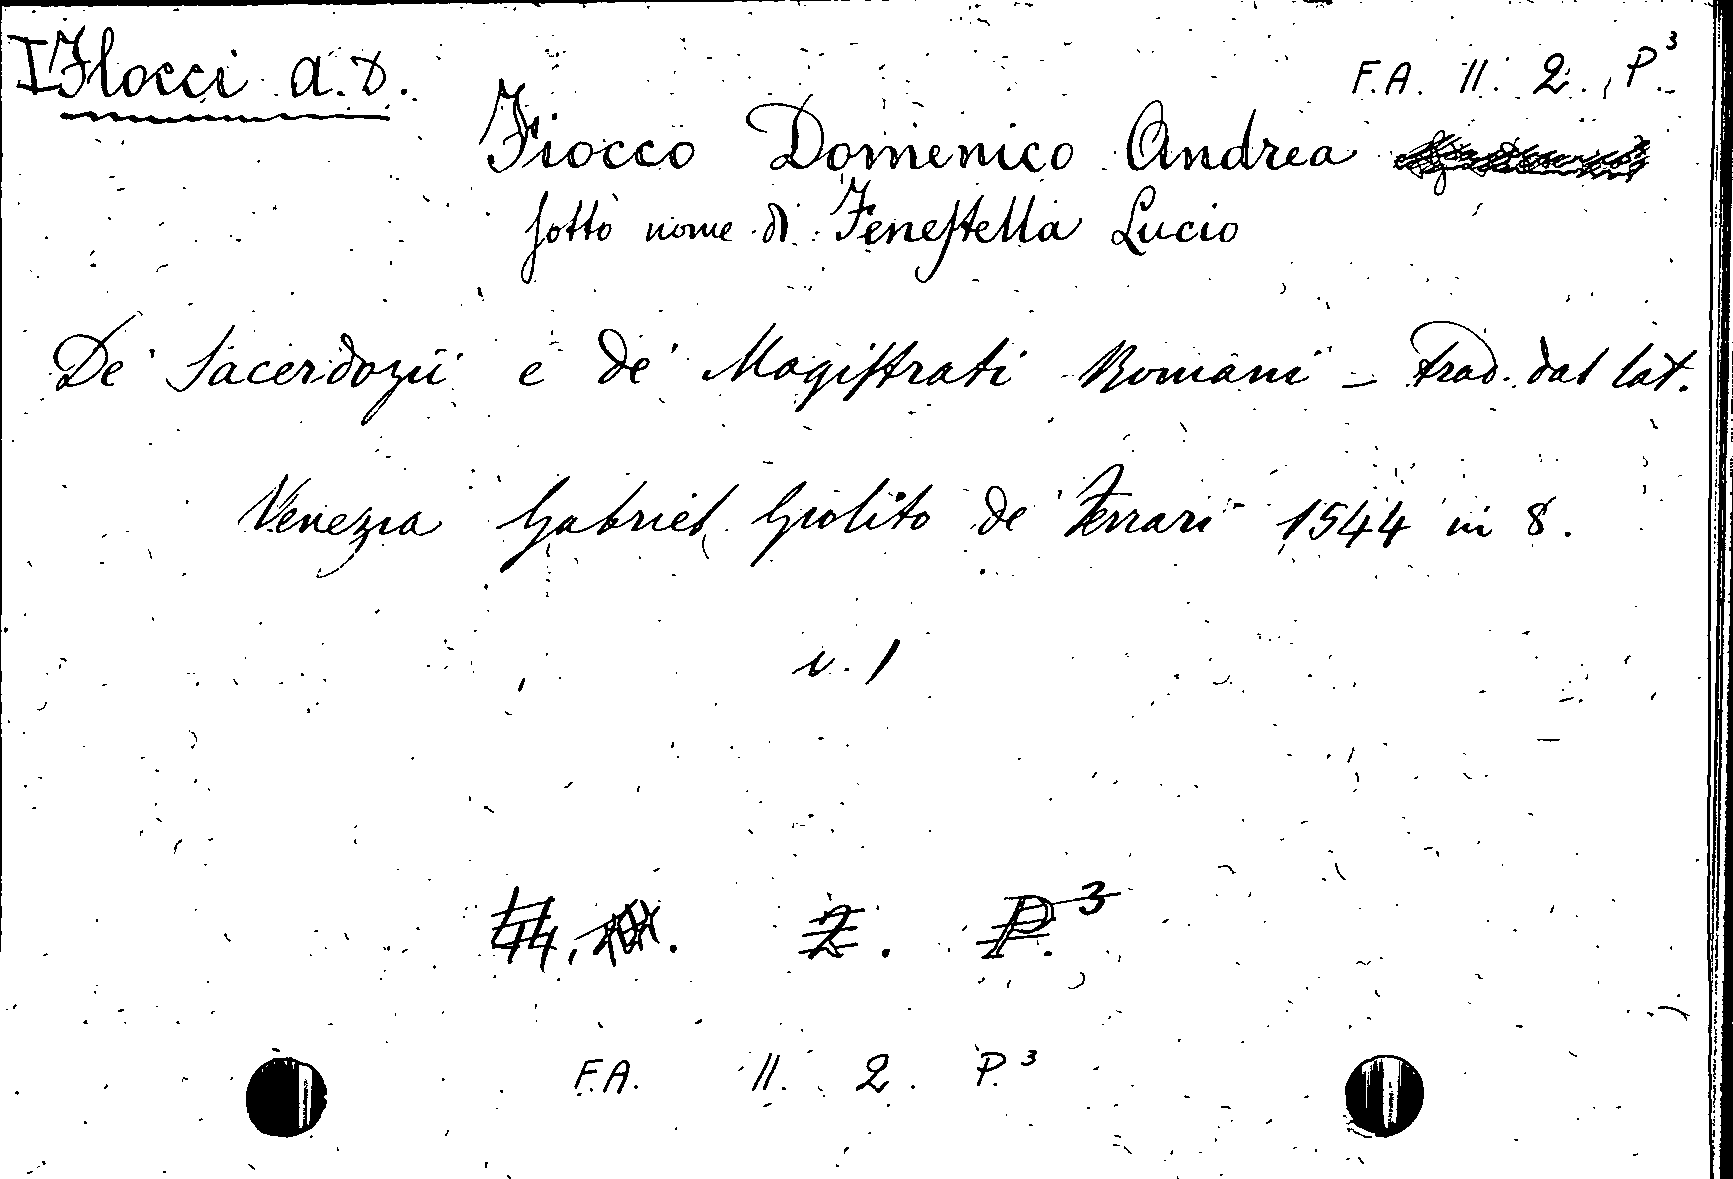 I Flocci A. D.
F.A. II. 2. P.3
Fiocco Domenico Andrea
sotto nome di Fenestella Lucio
De' Sacerdozii e de' Magistrati Romani – Trad. dal lat.
Venezia Gabriel Giolito de' Ferrari 1544 in 8.
v. 1
44, . 2. P.3
F.A. II. 2. P.3